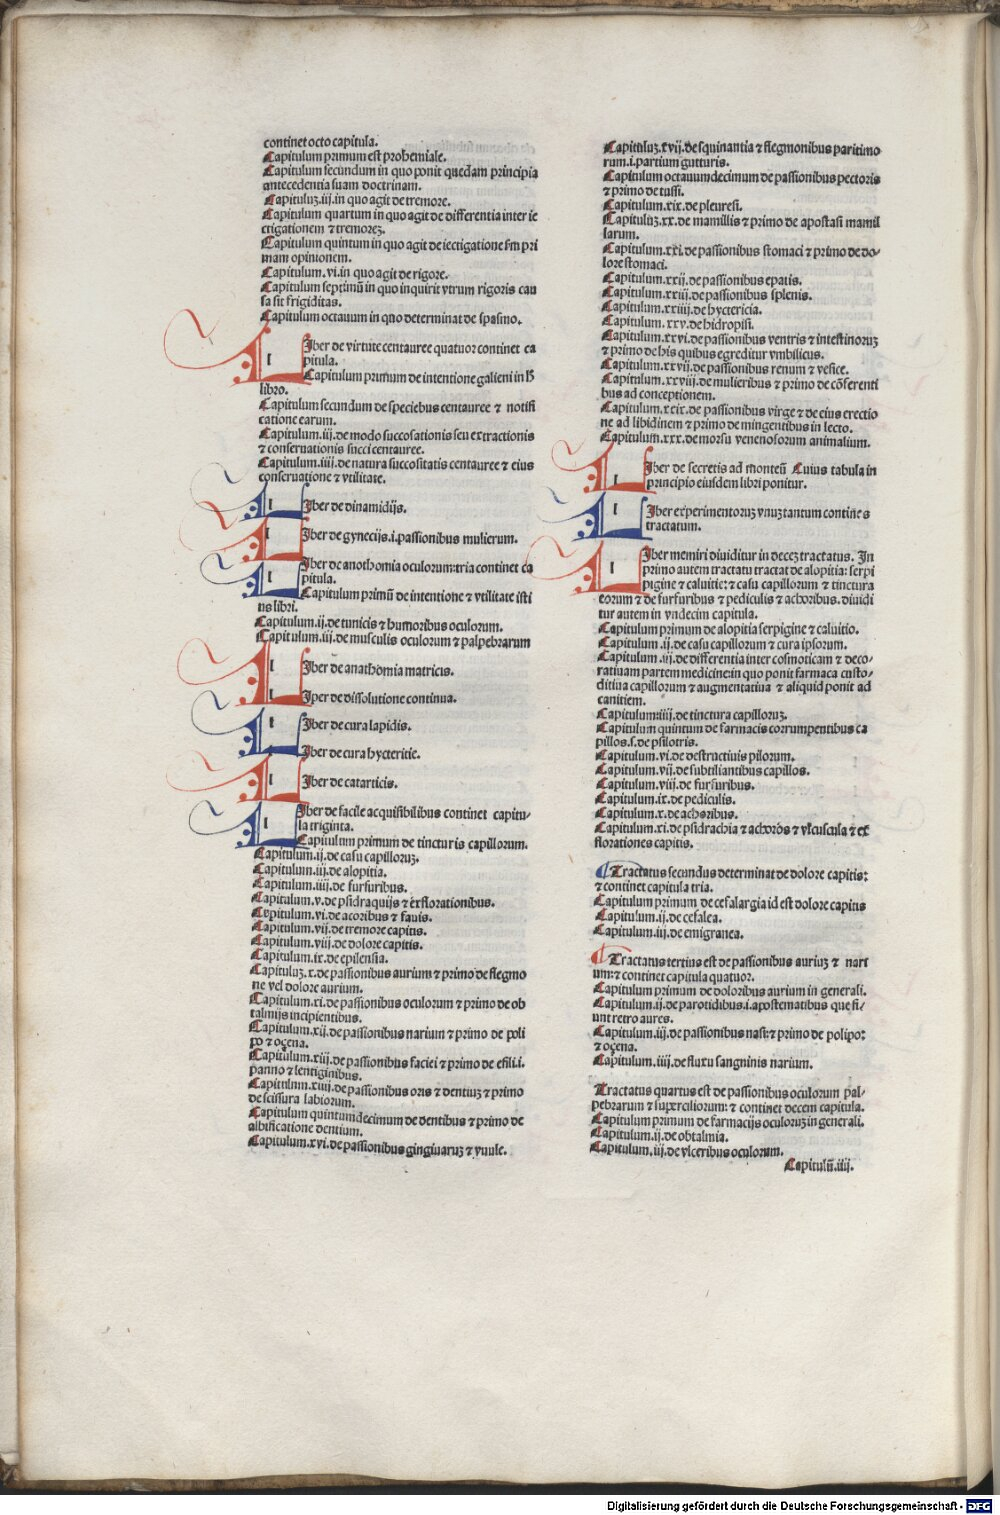 continet octo capitula.
Capitulum primum est prohemiale.
Capitulum secundum in quo ponit quedam principia
antecedentia suam doctrinam.
Capituluꝫ.iij.in quo agit de tremore.
Capitulum quartum in quo agit de differentia inter ie
ctigationem ⁊ tremoreꝫ.
Capitulum quintum in quo agit de iectigatione ẜm pri
mam opinionem.
Capitulum.vi.in quo agit de rigore.
Capitulum septimū in quo inquirit vtrum rigoris cau
sa sit frigiditas.
Capitulum octauum in quo determinat de spasmo.
LIber de virtute centauree quatuor continet ca
pitula.
Capitulum primum de intentione galieni in h
libro.
Capitulum secundum de speciebus centauree ⁊ notifi
catione earum.
Capitulum.iij.de modo succosationis seu extractionis
⁊ conseruationis succi centauree.
Capitulum.iiij.de natura succositatis centauree ⁊ eius
conseruatione ⁊ vtilitate.
LIber de dinamidijs.
LIber de gynecijs.i.passionibus mulierum.
LIber de anothomia oculorum:tria continet ca
pitula.
Capitulum primū de intentione ⁊ vtilitate isti
us libri.
Capitulum.ij.de tunicis ⁊ humoribus oculorum.
Capitulum.iij.de musculis oculorum ⁊ palpebrarum
LIber de anathomia matricis.
LIper de dissolutione continua.
LIber de cura lapidis.
Iber de cura hycteritie.
LIber de catarticis.
LIber de facile acquisibilibus continet capitu-
la triginta.
Capitulum primum de tincturis capillorum.
Capitulum.ij.de casu capilloruꝫ.
Capitulum.iij.de alopitia.
Capitulum.iiij.de furfuribus.
Capitulum.v.de psidraquijs ⁊ exflorationibus.
Capitulum.vi.de acoribus ⁊ fauis.
Capitulum.vij.de tremore capitis.
Capitulum.viij.de dolore capitis.
Capitulum.ix.de epilensia.
Capituluꝫ.x.de passionibus aurium ⁊ primo de flegmo
ne vel dolore aurium.
Capitulum.xi.de passionibus oculorum ⁊ primo de ob
talmijs incipientibus.
Capitulum.xij.de passionibus narium ⁊ primo de poli
po ⁊ oçena.
Capitulum.xiij.de passionibus faciei ⁊ primo de effli.i.
panno ⁊ lentiginibus.
Capitulum.xiiij.de passionibus oris ⁊ dentiuꝫ ⁊ primo
de scissura labiorum.
Capitulum quintumdecimum de dentibus ⁊ primo de
albificatione dentium.
Capitulum.xvi.de passionibus gingiuaruꝫ ⁊ vuule.
Capituluꝫ.xvij.de squinantia ⁊ flegmonibus paritimo
rum.i.partium gutturis.
Capitulum octauumdecimum de passionibus pectoris
⁊ primo de tussi.
Capitulum.xix.de pleuresi.
Capituluꝫ.xx.de mamillis ⁊ primo de apostasi mamil
larum.
Capitulum.xxi.de passionibus stomaci ⁊ primo de do-
lore stomaci.
Capitulum.xxij.de passionibus epatis.
Capitulum.xxiij.de passionibus splenis.
Capitulum.xxiiij.de hyctericia.
Capitulum.xxv.de hidropisi.
Capitulum.xxvi.de passionibus ventris ⁊ intestinoruꝫ
⁊ primo de his quibus egreditur vmbilicus.
Capitulum.xxvij.de passionibus renum ⁊ vesice.
Capitulum.xxviij.de mulieribus ⁊ primo de cōferenti
bus ad conceptionem.
Capitulum.xxix.de passionibus virge ⁊ de eius erectio
ne ad libidinem ⁊ primo de mingentibus in lecto.
Capitulum.xxx.de morsu venenosorum animalium.
LIber de secretis ad monteū Cuius tabula in
principio eiusdem libri ponitur.
LIber experimentoruꝫ vnuꝫ tantum continens
tractatum.
LIber memiri diuiditur in deceꝫ tractatus. In
primo autem tractatu tractat de alopitia: serpi
pigine ⁊ caluitie: ⁊ casu capillorum ⁊ tinctura
eorum ⁊ de furfuribus ⁊ pediculis ⁊ achoribus. diuidi
tur autem in vndecim capitula.
Capitulum primum de alopitia serpigine ⁊ caluitio.
Capitulum .ij.de casu capillorum ⁊ cura ipsorum.
Capitulum .iij.de differentia inter cosmoticam ⁊ deco-
ratiuam partem medicine:in quo ponit farmaca custo-
ditiua capillorum ⁊ augmentatiua ⁊ aliquid ponit ad
canitiem.
Capitulum.iiij.de tinctura capilloruꝫ.
Capitulum quintum de farmacis corrumpentibus ca
pillos.s.de psilotris.
Capitulum.vi.de destructiuis pilorum.
Capitulum.vij.de subtiliantibus capillos.
Capitulum.viij.de furfuribus.
Capitulum.ix.de pediculis.
Capitulum.x.de achoribus.
Capitulum.xi.de psidrachia ⁊ achoros ⁊ vlcuscula ⁊ ex
florationes capitis.
Tractatus secundus determinat de dolore capitis:
⁊ continet capitula tria.
Capitulum primum de cefalargia id est dolore capitis
Capitulum.ij.de cefalea.
Capitulum.iij.de emigranea.
Tractatus tertius est de passionibus auriuꝫ ⁊ nari
um:⁊ continet capitula quatuor.
Capitulum primum de doloribus aurium in generali.
Capitulum.ij.de parotidibus.i.apostematibus que fi-
unt retro aures.
Capitulum.iij.de passionibus nasi:⁊ primo de polipo:
⁊ oçena.
Capitulum.iiij.de fluxu sanguinis narium.
Tractatus quartus est de passionibus oculorum pal-
pebrarum ⁊ superciliorum:⁊ continet decem capitula.
Capitulum primum de farmacijs oculoruꝫ in generali.
Capitulum.ij.de obtalmia.
Capitulum.iij.de vlceribus oculorum.
Capitulū.iiij.
Digitalisierung gefördert durch die Deutsche Forschungsgemeinschaft - DFG